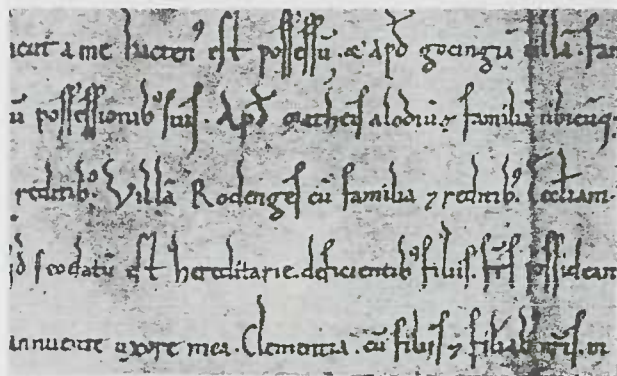 icut a me hucten⁹ est possessũ. & Apđ gocingũ uillã. fam
ũ possessionib⁹ suis. Apđ matheis alodiũ & familiã ubicũq
redditib⁹. Villã Rodenges cũ familia ⁊ redditib⁹. Eccliam
feodatũ est hereditarie. deficientib⁹ filiis. frs possideant
annuente uxore mea. Clementia. cũ filiis ⁊ filiab⁹ nris. in